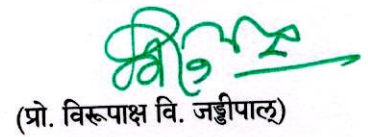 (प्रो. विरूपाक्ष वि. जड्डीपाल्)